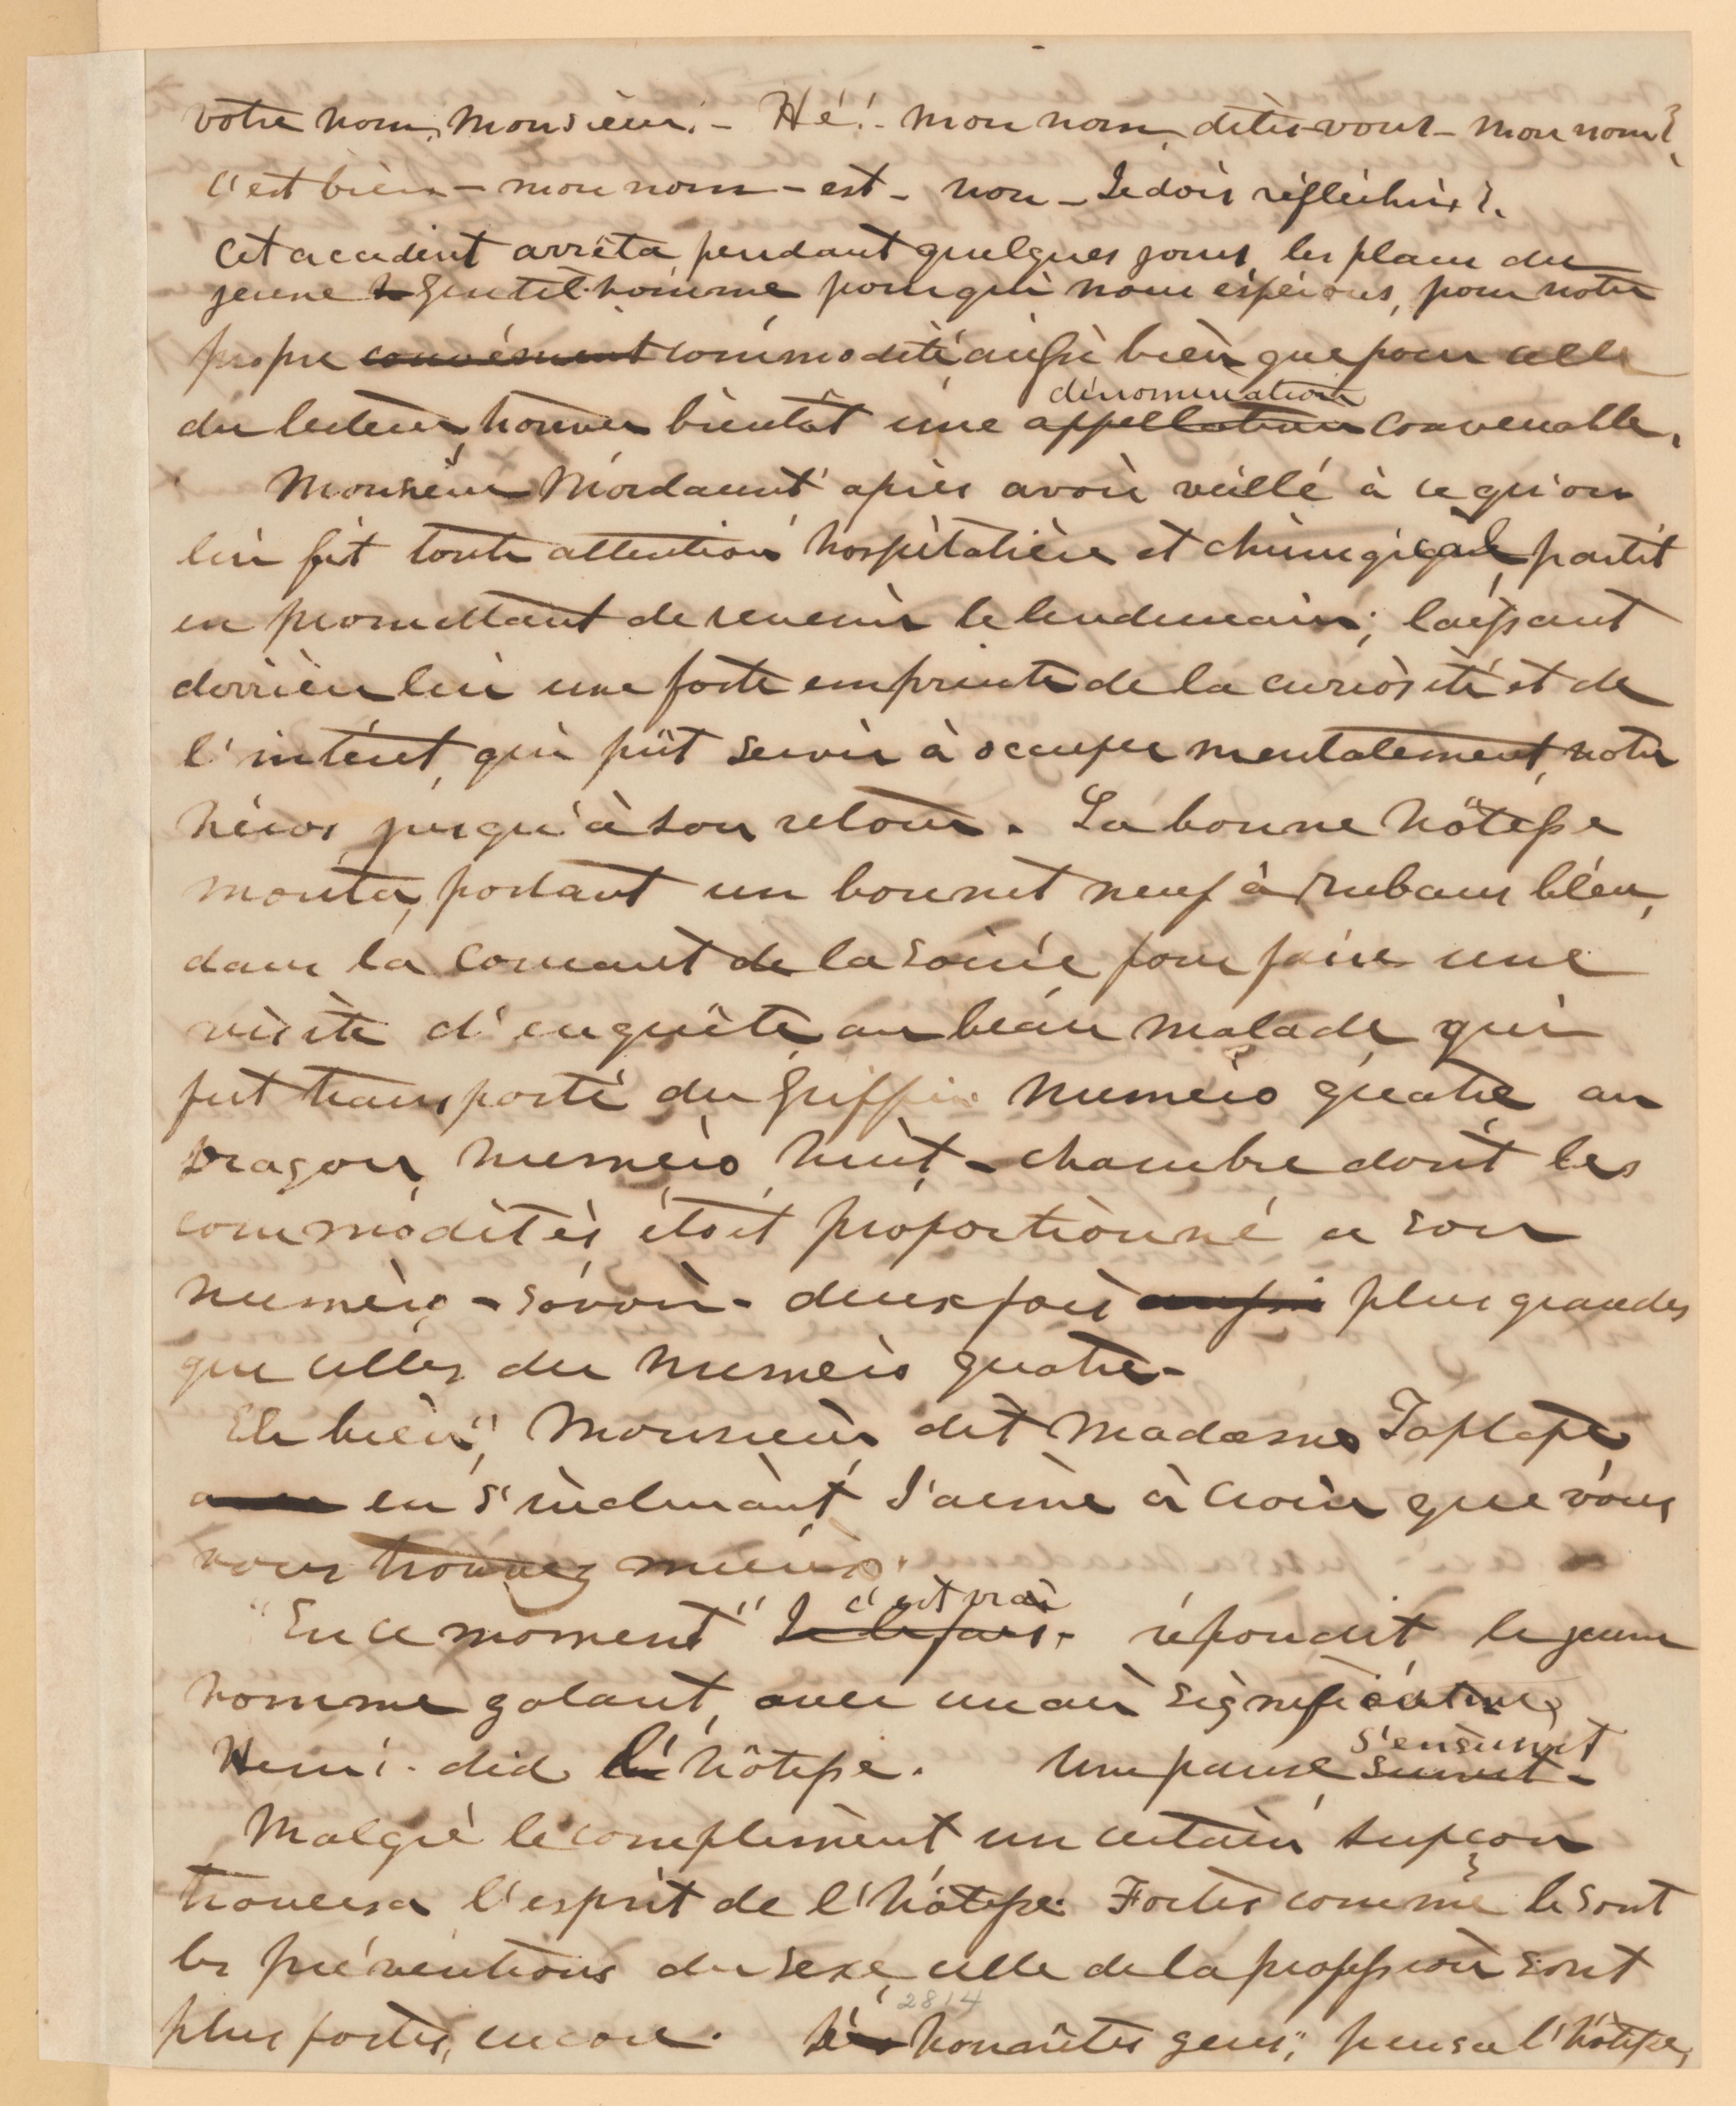 votre nom, Monsieur. – Hé! – mon nom, dites-vous – mon nom?
c'est bien – mon nom – est – non – Je dois réfléchir?.
Cet accident arrêta pendant quelques jours, les plans du
jeune gentil-homme pour qui nous espérons, pour notre
propre commodité aussi bien que pour celle
dénomination
du lecteur, trouver bientôt une appellation convenable.
Monsieur Mordaunt après avoir veillé à ce qu'on
lui fit toute attention hospitalière et chirurgical, partit
en promettant de revenir le lendemain; laissant
derrière lui une forte empreinte de la curiosité et de
l'intéret, qui pût servir à occuper mentalement, notre
héros, jusqu'à son retour. La bonne hôtesse
monta, portant un bonnet neuf à rubans bleu,
dans la courant de la soirée pour faire une
visite d'enquête, au beau malade, qui
fut transporté du Griffin numéro quatre au
Dragon, numéro huit – chambre dont les
commodités étoit proportionné a son
numéro – savoir – deux fois aussi plus grandes
que celles du numero quatre –
Eh bien", Monsieur, dit Madame Taptape
en s'inclinant J'aime à croire que vous
vous trouvez mieux.
c'est vrai
"En ce moment" Je le fais. répondit le jeune
homme galant, avec un air significative,
s'ensuivit
Hem! – did l'hôtesse. Une pause suivit –
Malgré le complément un certain supçon
traversa l'esprit de l'hôtesse. Fortes comme le sont
les préventions du sexe, celle de la profession sont
2814
plus fortes, encore. honnêtes gens," pensa l'hôtesse,